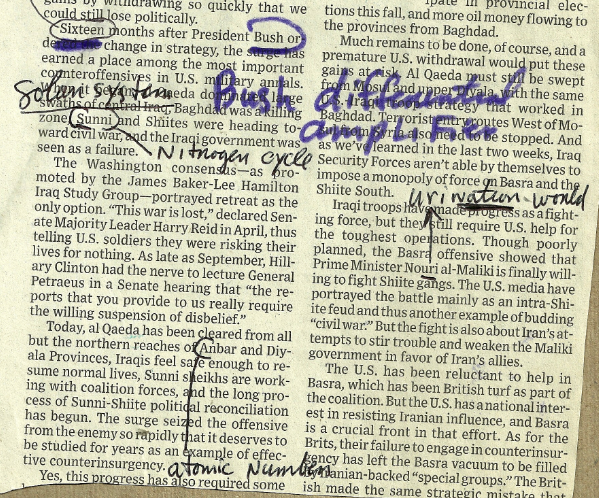 gains by withdrawing so quickly that we
could still lose politically.
Sixteen months after President Bush or-
dered the change in strategy, the surge has
earned a place among the most important
counteroffensives in U.S. military annals.
al Qaeda large
swaths of central Iraq, Baghdad was a killing
zone, Sunni and Shiites were heading to-
ward civil war, and the Iraqi government was
seen as a failure.
The Washington consensus—as pro-
moted by the James Baker-Lee Hamilton
Iraq Study Group—portrayed retreat as the
only option. "This war is lost," declared Sen-
ate Majority Leader Harry Reid in April, thus
telling U.S. soldiers they were risking their
lives for nothing. As late as September, Hill-
ary Clinton had the nerve to lecture General
Petraeus in a Senate hearing that "the re-
ports that you provide to us really require
the willing suspension of disbelief."
Today, al Qaeda has been cleared from all
but the northern reaches of Anbar and Diy-
ala Provinces, Iraqis feel safe enough to re-
sume normal lives, Sunni sheikhs are work-
ing with coalition forces, and the long pro-
cess of Sunni-Shiite political reconciliation
has begun. The surge seized the offensive
from the enemy so rapidly that it deserves to
be studied for years as an example of effec-
tive counterinsurgency.
Yes, this progress has also required some
in provincial elec-
tions this fall, and more oil money flowing to
the provinces from Baghdad.
Much remains to be done, of course, and a
premature U.S. withdrawal would put these
gains at risk. Al Qaeda must still be swept
from Mosul and upper Diyala, with the same
strategy that worked in
Baghdad. Terrorist entry routes West of Mo-
also be stopped. And
as we've learned in the last two weeks, Iraq
Security Forces aren't able by themselves to
impose a monopoly of force on Basra and the
Shiite South.
Iraqi troops have made progress as a fight-
ing force, but they still require U.S. help for
the toughest operations. Though poorly
planned, the Basra offensive showed that
Prime Minister Nouri al-Maliki is finally will-
ing to fight Shiite gangs. The U.S. media have
portrayed the battle mainly as an intra-Shi-
ite feud and thus another example of budding
"civil war." But the fight is also about Iran's at-
tempts to stir trouble and weaken the Maliki
government in favor of Iran's allies.
The U.S. has been reluctant to help in
Basra, which has been British turf as part of
the coalition. But the U.S. has a national inter-
est in resisting Iranian influence, and Basra
is a crucial front in that effort. As for the
Brits, their failure to engage in counterinsur-
gency has left the Basra vacuum to be filled
by Iranian-backed "special groups." The Brit-
ish made the same strategic mistake that
Solar system
Nitrogen cycle
Bush differential
amplifier
urination world
atomic number